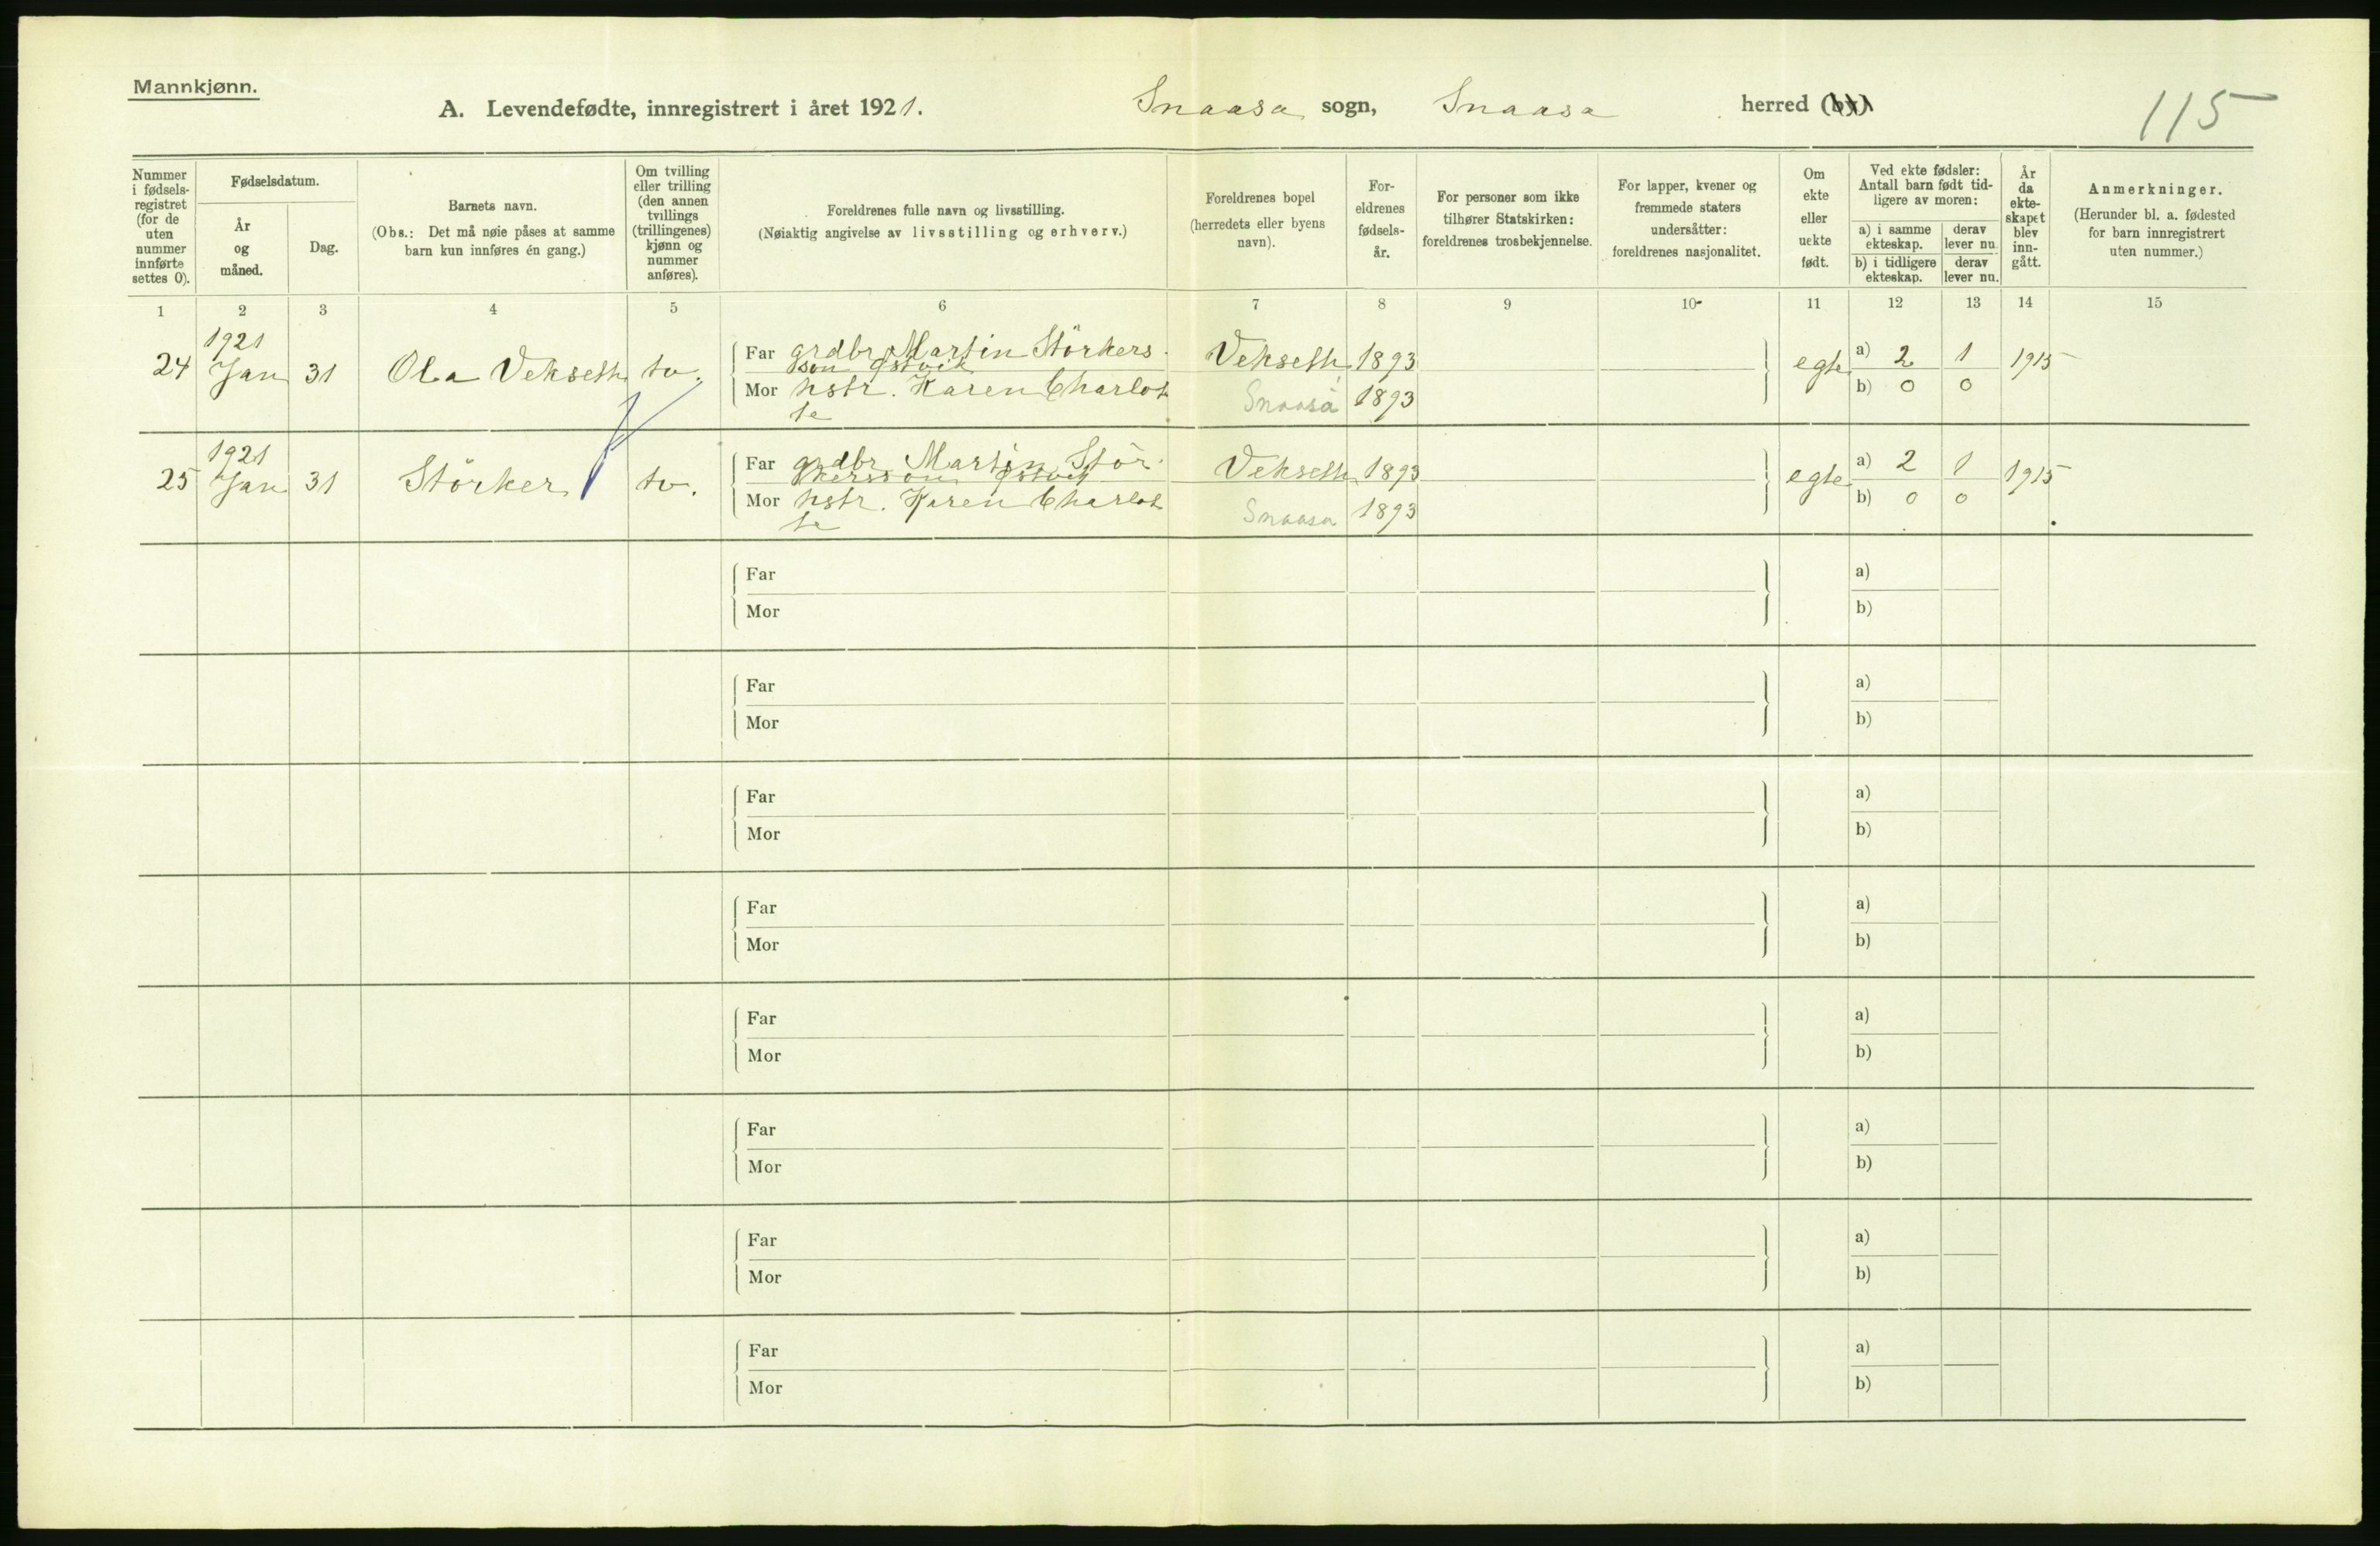 Mannkjønn.
A. Levendefødte, innregistrert i året 1921. Snaasa sogn, Snaasa herred (by)
115
Nummer i fødsels-registret (for de uten nummer innførte settes 0).
Fødselsdatum.
År og måned.
Dag.
Barnets navn.
(Obs.: Det må nøie påses at samme barn kun innføres én gang.)
Om tvilling eller trilling (den annen tvillings (trillingenes) kjønn og nummer anføres).
Foreldrenes fulle navn og livsstilling.
(Nøiaktig angivelse av livsstilling og erhverv.)
Foreldrenes bopel
(herredets eller byens navn).
For-eldrenes fødsels-år.
For personer som ikke tilhører Statskirken: foreldrenes trosbekjennelse.
For lapper, kvener og fremmede staters undersåtter: foreldrenes nasjonalitet.
Om ekte eller uekte født.
Ved ekte fødsler: Antall barn født tid-ligere av moren:
a) i samme ekteskap.
derav lever nu.
b) i tidligere ekteskap.
derav lever nu.
År da ekte-skapet blev inn-gått.
Anmerkninger.
(Herunder bl. a. fødested for barn innregistrert uten nummer.)
1 2 3 4 5 6 7 8 9 10 11 12 13 14 15
24 1921 Jan 31 Ola Vekseth tv.
Far grdbr Martin Störkers
son Østvik Vekseth 1893
Mor hstr. Karen Charlot
te Snaasa 1893
egte a) 2 1 1915
b) 0 0
25 1921 Jan 31 Störker tv.
Far grdbr Martin Stör
kersson Østvik Vekseth 1893
Mor hstr. Karen Charlot
te Snaasa 1893
egte a) 2 1 1915
b) 0 0
Far a)
Mor b)
Far a)
Mor b)
Far a)
Mor b)
Far a)
Mor b)
Far a)
Mor b)
Far a)
Mor b)
Far a)
Mor b)
Far a)
Mor b)